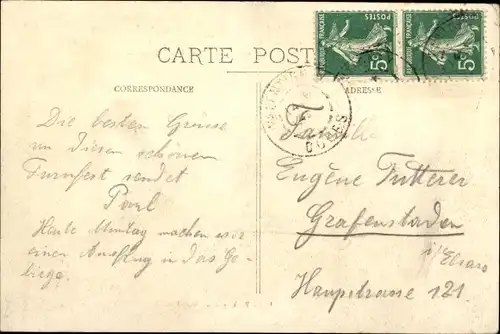 CARTE POST
CORRESPONDANCE
ADRESSE
REPUBLIQUE FRANÇAISE
POSTES
5c
REPUBLIQUE FRANÇAISE
POSTES
5c
DOUBS
Die besten Grüsse
von diesem schönen
Turnfest sendet
Paul
Heute Montag machen wir
einen Ausflug in das Ge-
birge.
Familie
Eugène Futterer
Grafenstaden
i/Elsass
Hauptstrasse 121.